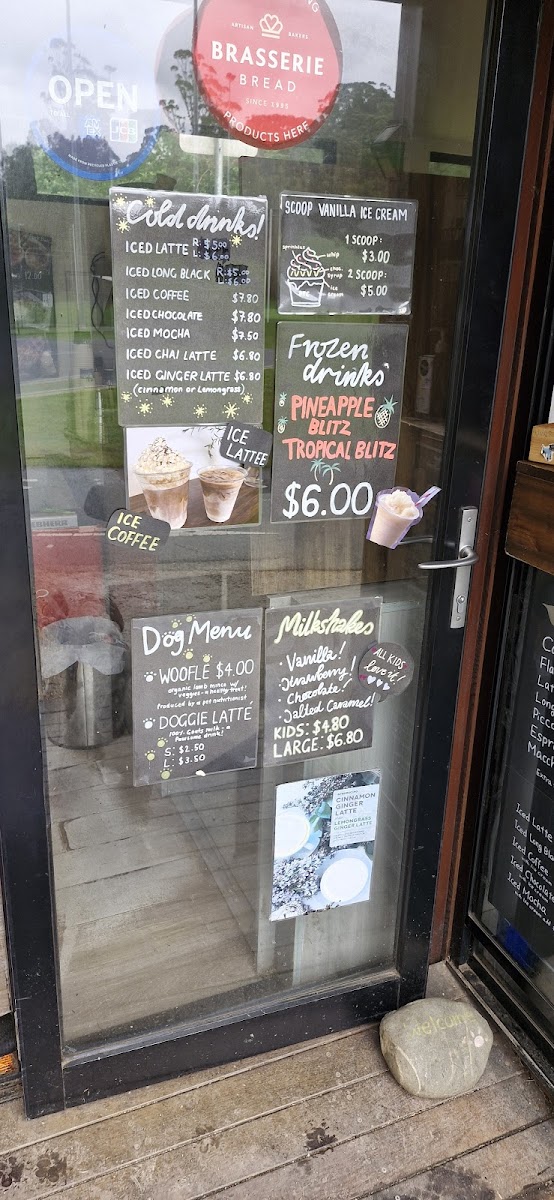 ARTISAN BAKERS
BRASSERIE
BREAD
SINCE 1983
PRODUCTS HERE
OPEN
JCB
Cold drinks!
ICED LATTE R: $5.00
L: $6.00
ICED LONG BLACK R: $5.00
L: $6.00
ICED COFFEE $7.80
ICED CHOCOLATE $7.80
ICED MOCHA $7.50
ICED CHAI LATTE $6.80
ICED GINGER LATTE $6.80
(Cinnamon or Lemongrass)
SCOOP VANILLA ICE CREAM
1 SCOOP:
$3.00
2 SCOOP:
$5.00
sprinkles
whip
choc.
syrup
ice
cream
Frozen
drinks
PINEAPPLE
BLITZ
TROPICAL BLITZ
$6.00
ICE
LATTEE
ICE
COFFEE
Dog Menu
WOOFLE $4.00
organic lamb mince w/
veggies - a healthy treat!
Produced by a pet nutritionist
DOGGIE LATTE
100% Goats milk - a
Pawsome drink!
S: $2.50
L: $3.50
Milkshakes
· Vanilla!
· Strawberry!
· Chocolate!
· Salted Caramel!
KIDS: $4.80
LARGE: $6.80
ALL KIDS
love it!
CINNAMON
GINGER
LATTE
LEMONGRASS
GINGER LATTE
Espr
Macch
Extra
Iced Latte
Iced Long Bla
Iced Coffee
Iced Chocolate
Iced Mocha
Welcome